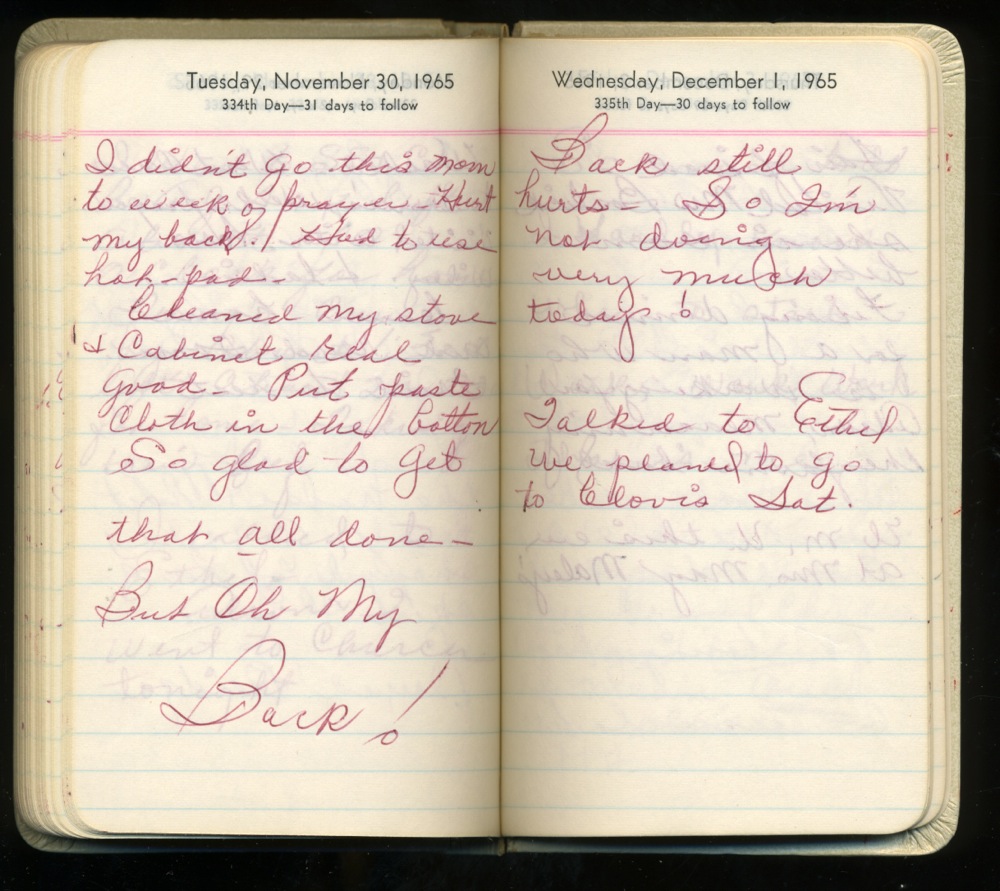 Tuesday, November 30, 1965
334th Day—31 days to follow
I didn't go this morn
to week of prayer - Hurt
my back! Had to use
hot-pad -
Cleaned my stove
& Cabinet real
good - Put paste
Cloth in the bottom
So glad to get
that all done -
But Oh My
Back!
Wednesday, December 1, 1965
335th Day—30 days to follow
Back still
hurts - So I'm
not doing
very much
today!
Talked to Ethel
we planed to go
to Clovis Sat.